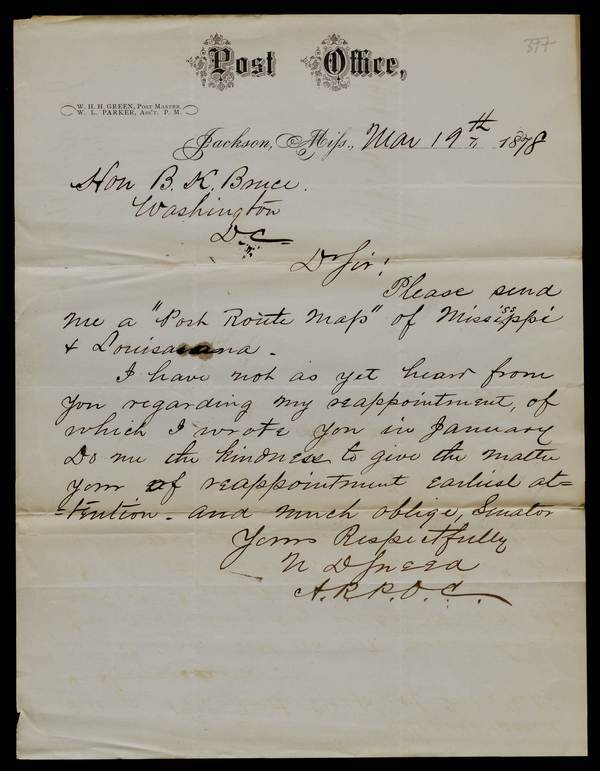 397
Post Office,
W. H. H. GREEN, Post Master.
W. L. PARKER, Ass't. P. M.
Jackson, Miss., Mar 19th 1878
Hon B. K. Bruce.
Washington
D C
Dr Sir!
Please send
me a "Post Route Map" of Missisippi
& Louisaiana.
I have not as yet heard from
you regarding my reappointment, of
which I wrote you in January
Do me the kindness to give the matter
your of reappointment earliest at=
=tention. and much oblige, Senator
Yours Respectfully
N D Sneed
A. R. P. O. C.